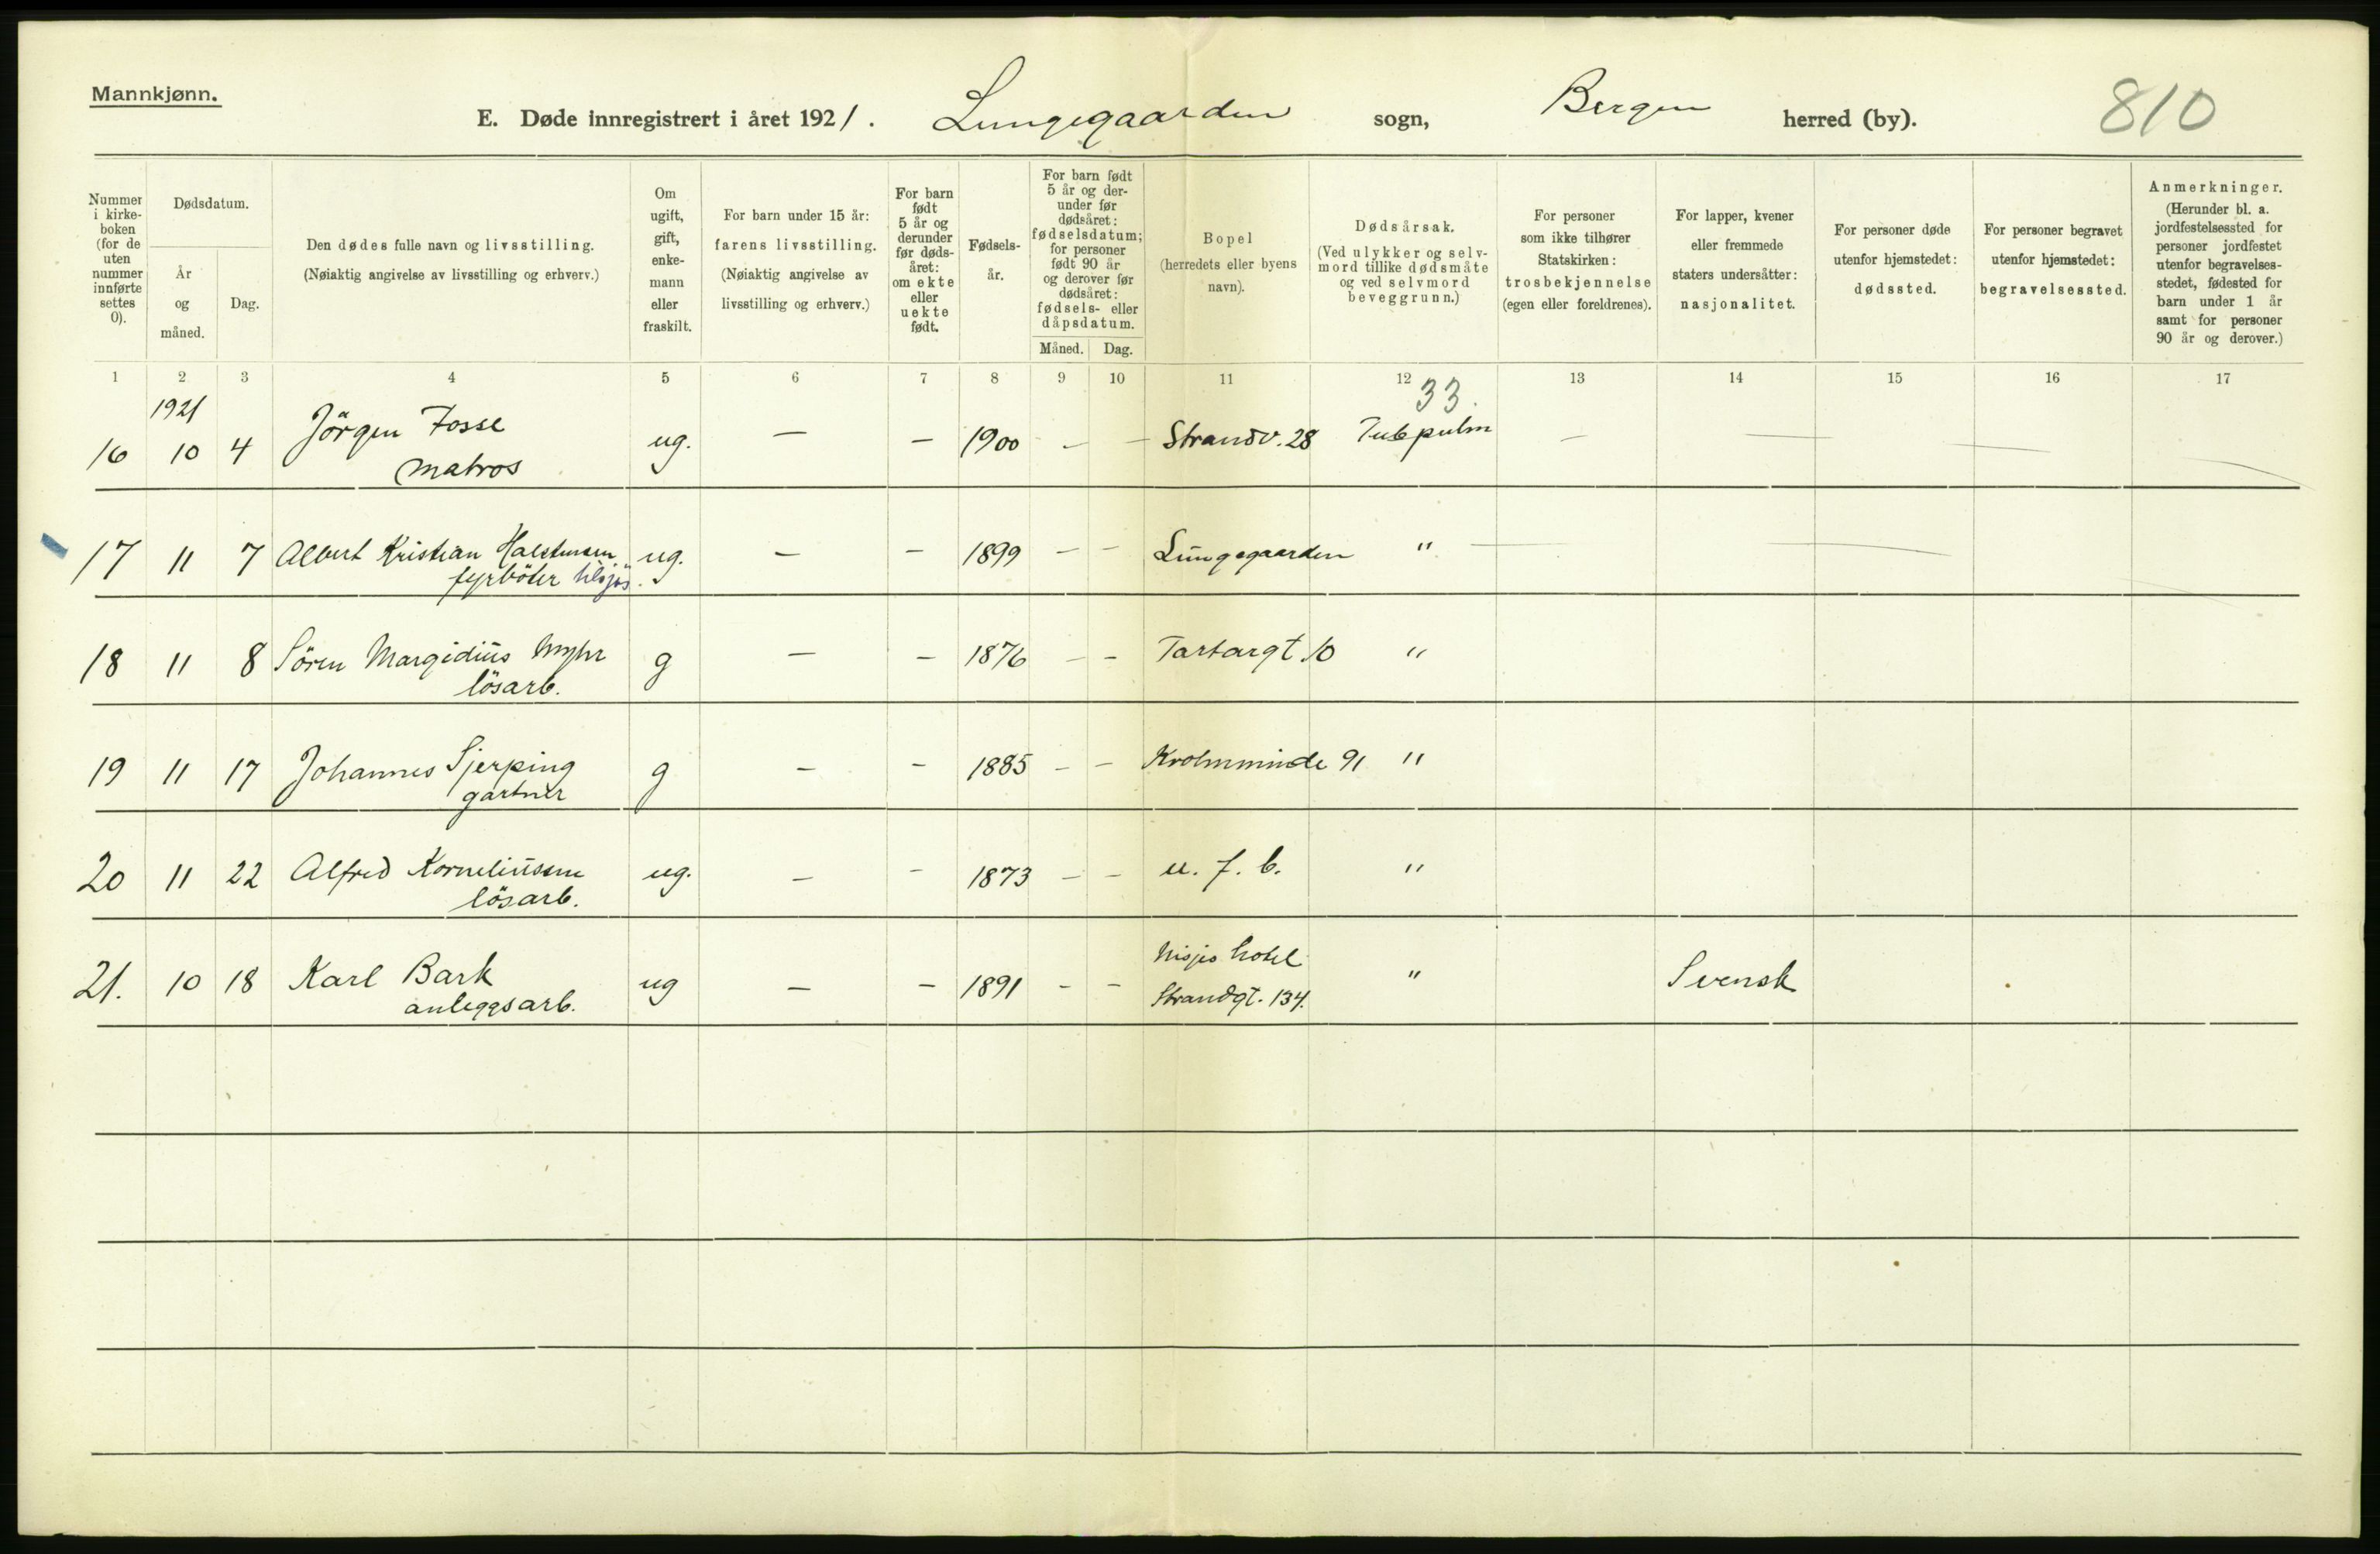 Mannkjønn.
E. Døde innregistrert i året 1921. Lungegaarden sogn, Bergen herred (by). 810
Nummer i kirke- boken (for de uten nummer innførte settes 0).
Dødsdatum.
År og måned.
Dag.
Den dødes fulle navn og livsstilling.
(Nøiaktig angivelse av livsstilling og erhverv.)
Om ugift, gift, enke- mann eller fraskilt.
For barn under 15 år:
farens livsstilling.
(Nøiaktig angivelse av
livsstilling og erhverv.)
For barn født 5 år og derunder før døds- året: om ekte eller uekte født.
Fødsels- år.
For barn født 5 år og der- under før dødsåret: fødselsdatum; for personer født 90 år og derover før dødsåret: fødsels- eller dåpsdatum.
Måned. Dag.
Bopel
(herredets eller byens navn).
Dødsårsak.
(Ved ulykker og selv- mord tillike dødsmåte og ved selvmord beveggrunn.)
For personer som ikke tilhører Statskirken: trosbekjennelse (egen eller foreldrenes).
For lapper, kvener eller fremmede staters undersåtter: nasjonalitet.
For personer døde utenfor hjemstedet: dødssted.
For personer begravet utenfor hjemstedet: begravelsessted.
Anmerkninger.
(Herunder bl. a. jordfestelsessted for personer jordfestet utenfor begravelses- stedet, fødested for barn under 1 år samt for personer 90 år og derover.)
1 2 3 4 5 6 7 8 9 10 11 12 13 14 15 16 17
1921 33.
16 10 4 Jörgen Fosse ug. — — 1900 – — Strandv. 28 Tub pulm —
matros
17 11 7 Albert Kristian Halstensen ug. — – 1899 – – Lungegaarden "
fyrböter tilsjøs.
18 11 8 Sören Margidius Myhr g — – 1876 – – Tartargt 10 "
lösarb.
19 11 17 Johannes Sjerping g – – 1885 – – Krohnminde 91 "
gartner
20 11 22 Alfred Korneliussen ug. – – 1873 – – u. f. b. "
lösarb.
21. 10 18 Karl Bark ug – – 1891 – – Misjes hotel " Svensk
anleggsarb. Strandgt. 134.